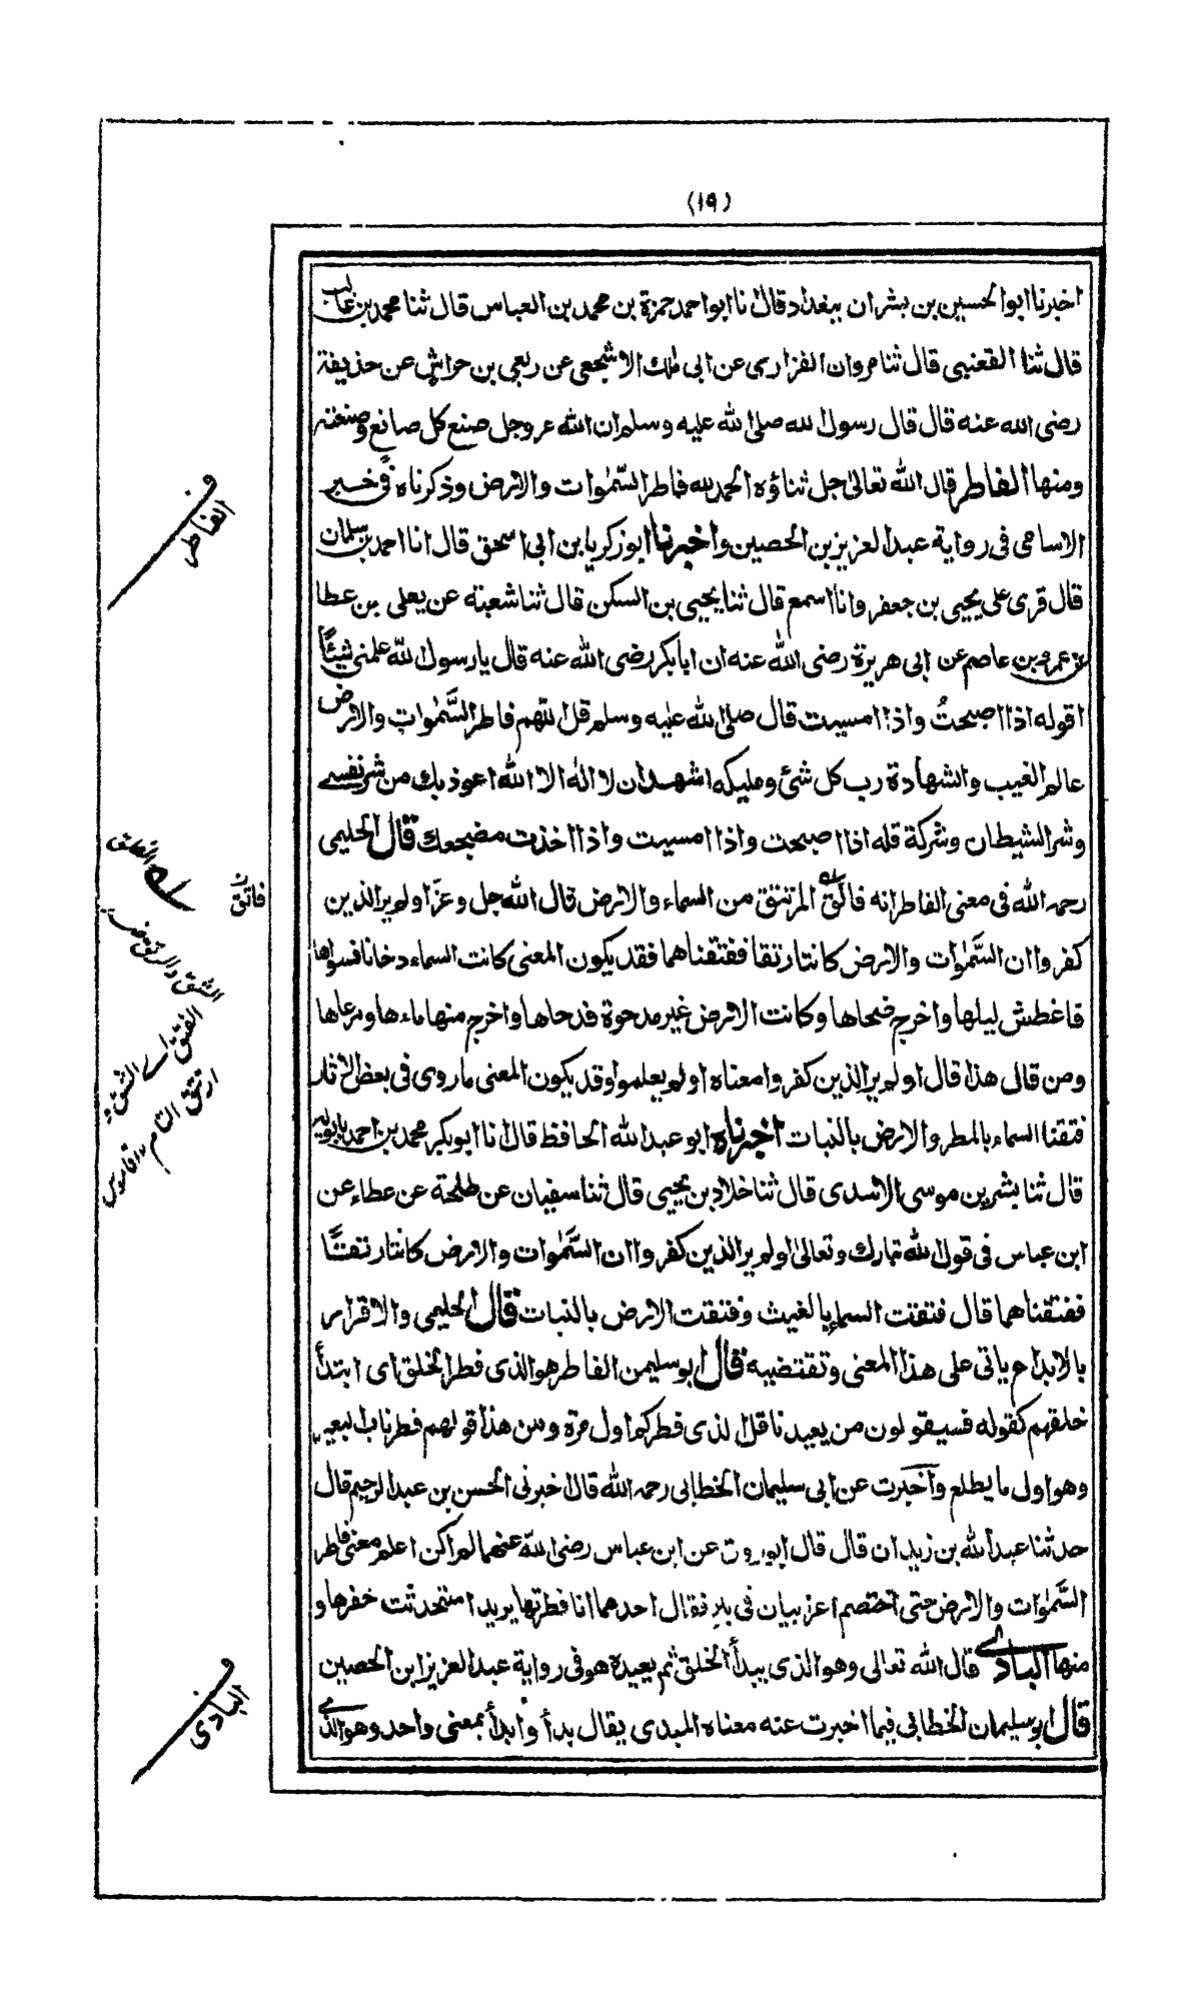 (١٩)
اخبرنا ابو الحسين بن بشران ببغداد قال انا ابو احمد حمزة بن محمد بن العباس قال ثنا محمد بن غالب
قال ثنا القعنبى قال ثنا مروان الفزارى عن ابى ملك الاشجعى عن ربعى بن حراش عن حذيفة
رضى الله عنه قال قال رسول الله صلى الله عليه وسلم ان الله عز وجل صنع كل صانع وصنعته
ومنها الفاطر قال الله تعالى جل ثناؤه الحمد لله فاطر السَّمٰوات والارض وذكرناه فى خبر
الاسامى فى رواية عبد العزيز بن الحصين واخبرنا ابو زكريا بن ابى اسحق قال انا احمد بن سلمان
قال قرى على يحيى بن جعفر وانا اسمع قال ثنا يحيى بن السكن قال ثنا شعبته عن يعلى بن عطا
عن عمرو بن عاصم عن ابى هريرة رضى الله عنه ان ابا بكر رضى الله عنه قال يا رسول الله علمنى شيئًا
اقوله اذا اصبحتُ واذا امسيت قال صلى الله عليه وسلم قل اللهم فاطر السَّمٰوات والارض
عالم الغيب والشهادة رب كل شئ ومليكه اشهد ان لا اله الا الله اعوذ بك من شر نفسے
وشر الشيطان وشركة قله اذا اصبحت واذا امسيت واذا اخذت مضجعك قال الحليمى
رحمه الله فى معنى الفاطر انه فاتق المرتتق من السماء والارض قال الله جل وعزّ اولم ير الذين
كفروا ان السَّمٰوات والارض كانتا رتقا ففتقناهما فقد يكون المعنى كانت السماء دخانا فسواها
فاغطش ليلها واخرج ضحاها وكانت الارض غير مدحوة فدحاها واخرج منها ماءها ومرعاها
ومن قال هذا قال اولم ير الذين كفروا معناه اولم يعلموا وقد يكون المعنى ما روى فى بعض الاثار
فتقنا السماء بالمطر والارض بالنبات اخبرناه ابو عبد الله الحافظ قال انا ابو بكر محمد بن احمد بابويه
قال ثنا بشر بن موسى الاسدى قال ثنا خلاد بن يحيى قال ثنا سفيان عن طلحة عن عطاء عن
ابن عباس فى قول الله تبارك وتعالى اولم ير الذين كفروا ان السَّمٰوات والارض كانتا رتقًا
ففتقناهما قال فتقت السماء بالغيث وفتقت الارض بالنبات قال الحليمى والاقرار
بالابداع ياتى على هذا المعنى وتقتضيه قال ابو سليمن الفاطر هو الذى فطر الخلق اى ابتدأ
خلقهم كقوله فسيقولون من يعيدنا قل الذى فطركم اول مرة ومن هذا قولهم فطر ناب البعير
وهو اول ما يطلع وأخبرت عن ابى سليمان الخطابى رحمه الله قال اخبرنى الحسن بن عبد الرحيم قال
حدثنا عبد الله بن زيدان قال قال ابو روق عن ابن عباس رضى الله عنهما لم اكن اعلم معنى فاطر
السَّمٰوات والارض حتى اختصم اعرابيان فى بئر فقال احدهما انا فطرتها يريد استحدثت حفرها و
منها البادى قال الله تعالى وهو الذى يبدأ الخلق ثم يعيده هو فى رواية عبد العزيز ابن الحصين
قال ابو سليمان الخطابى فيما اخبرت عنه معناه المبدى يقال بدأ وأبدأ بمعنى واحد وهو الذى
الفاطر
فاتق ن
الفاتق
الشق
الفتق اے الشق
البادى